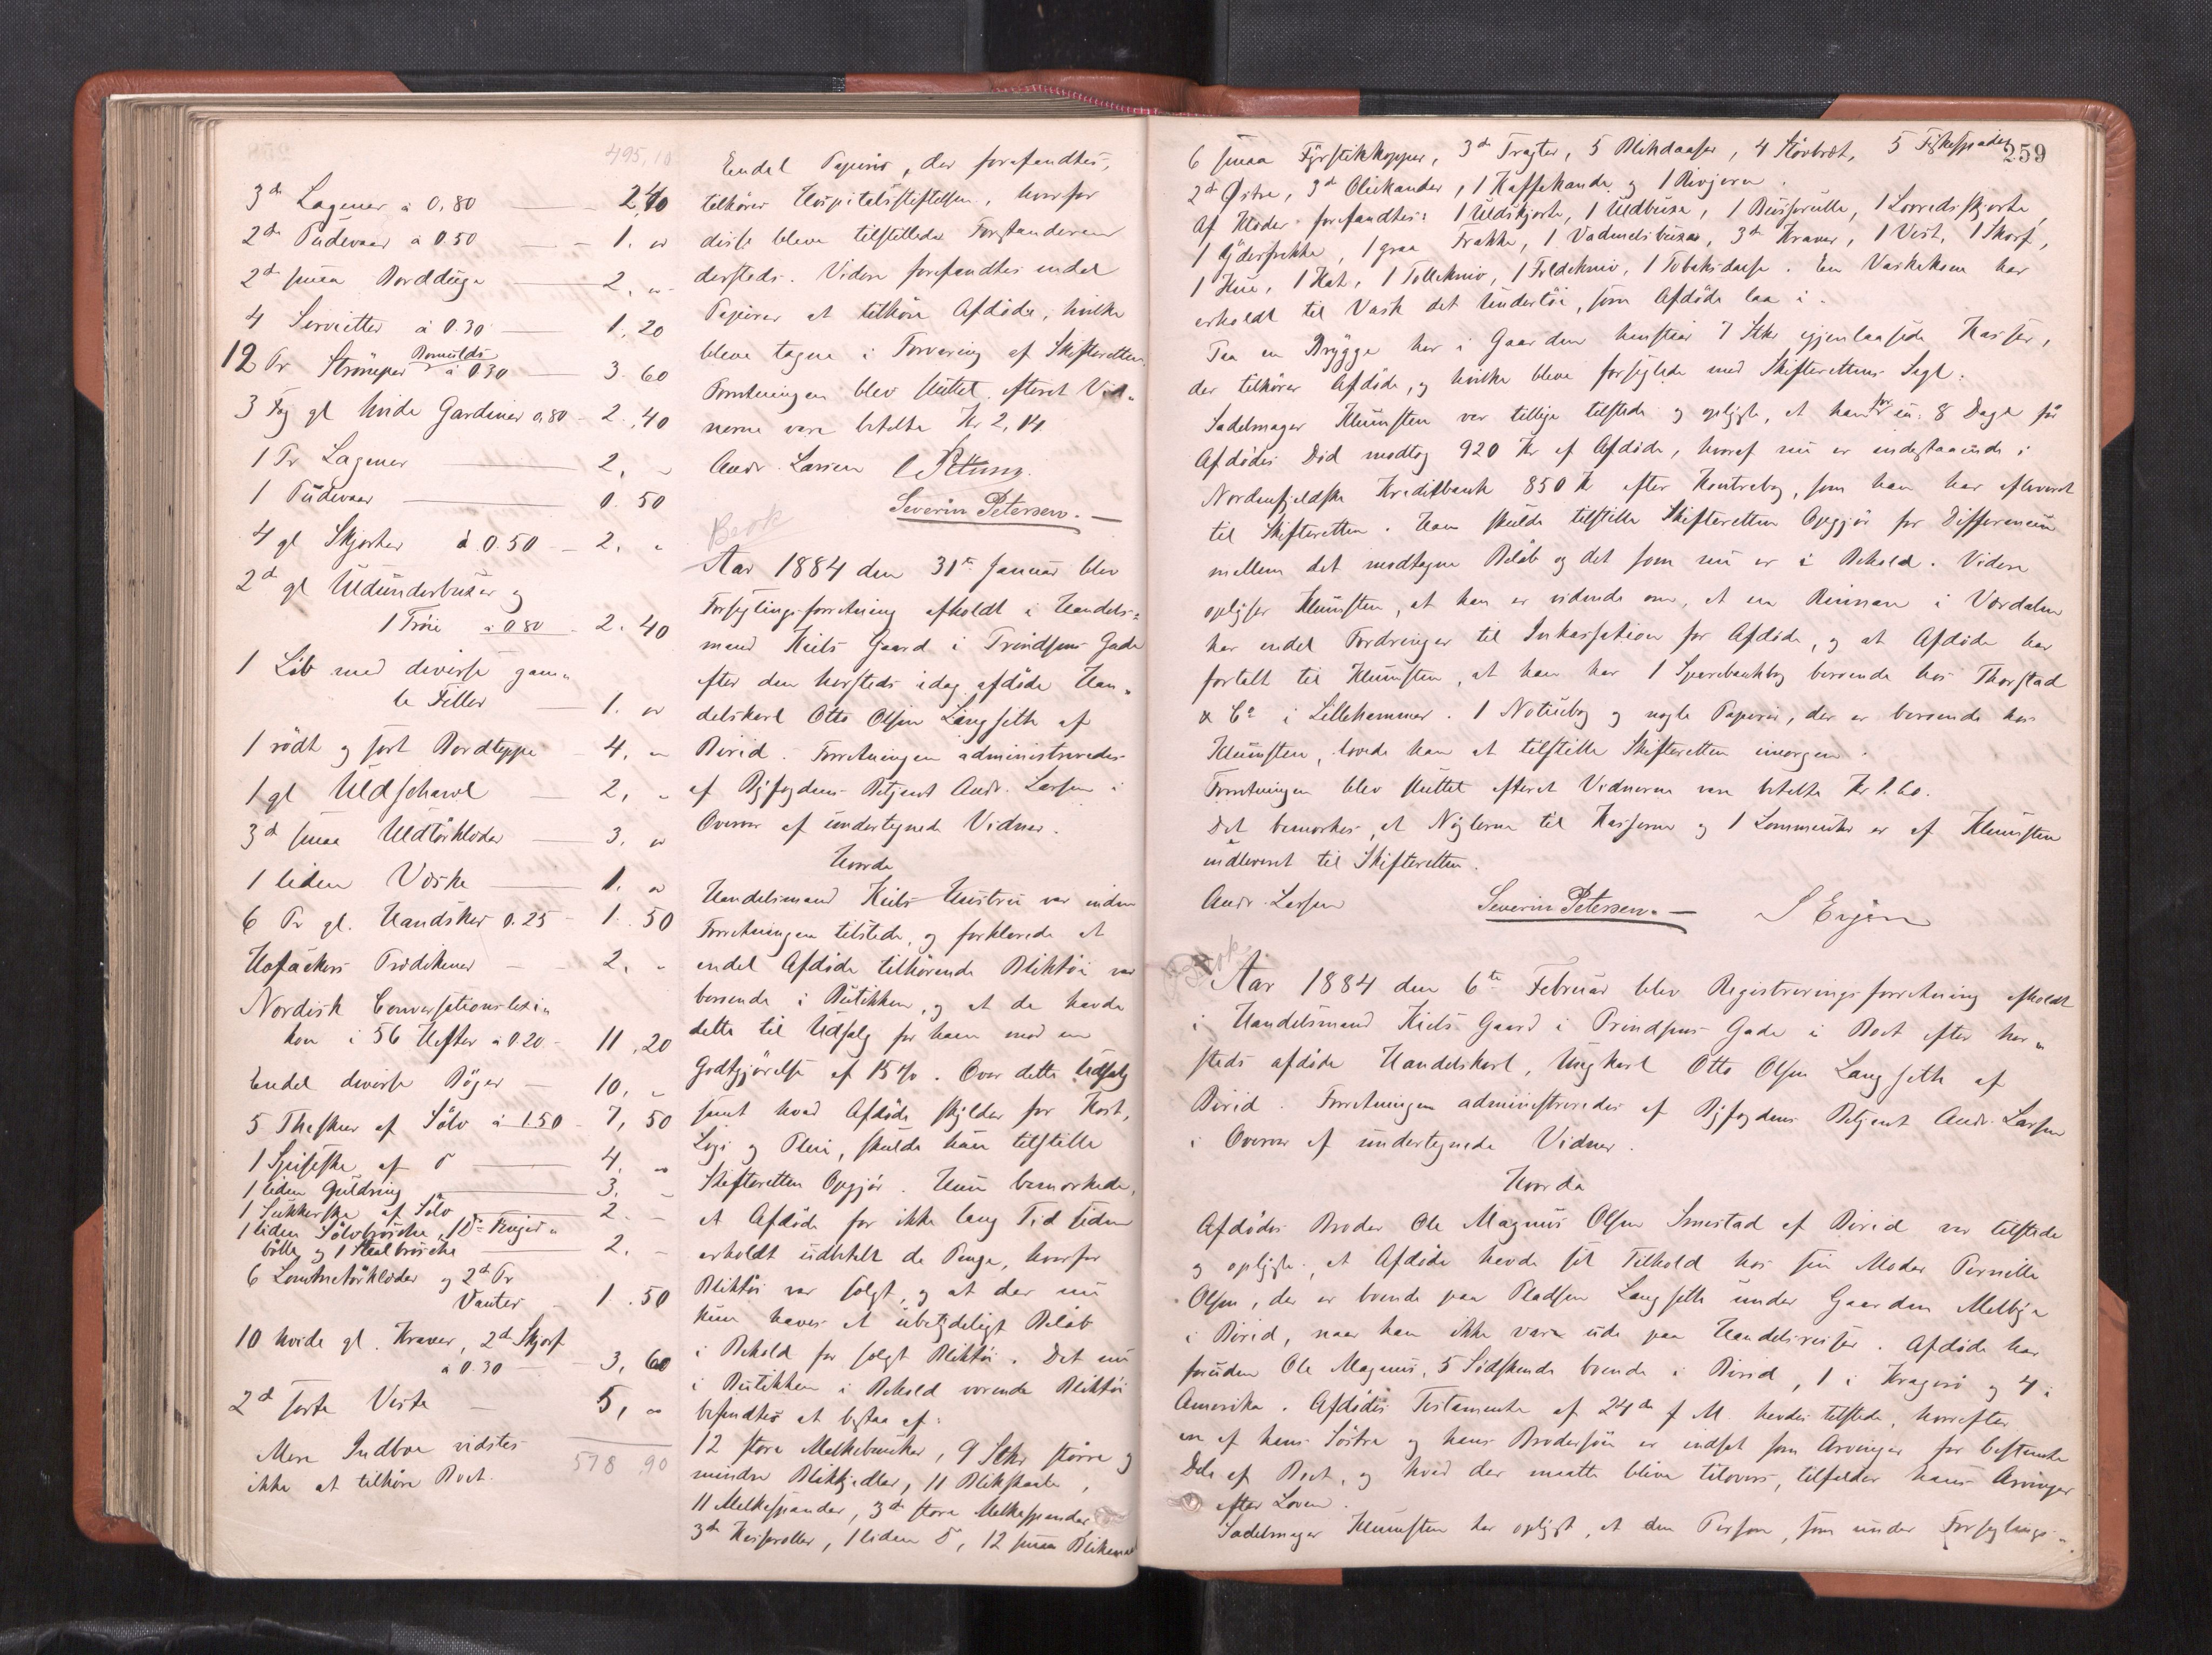 495,10
3de Lagener à 0.80 2.40
2de Pudevaar à 0.50 1. "
2de smaa Bordduge 2. "
4 Servietter à 0.30 1.20
12 Pr Strömper Bomulds à 0.30 3.60
3 Fag gl hvide Gardiner 0.80 2.40
1 Pr Lagener 2. "
1 Pudevaar 0.50
4 gl Skjorter à 0.50 2. "
2de gl Uldunderbuxer og
1 Tröie à 0.80 2.40
1 Löb med diverse gam=
le Filler 1. "
1 rödt og sort Bordteppe 4. "
1 gl Uldschawl 2. "
3de smaa Uldtörklæder 3. "
1 liden Væske 1. "
6 Pr gl. Handsker 0.25 1.50
Hofackers Prædikener 2. "
Nordisk Conversationslexi=
kon i 56 Hefter à 0.20 11.20
Endel diverse Böger 10. "
5 Theskeer af Sölv à 1.50 7,50
1 Spiseske af do 4. "
1 liden Guldring 3. "
1 Sukkerske af Sölv 2. "
1 liden Sölvbrosche, 1 Do
og 1 Staalbrosche 2. "
6 Lommetörklæder og 2de Pr
Vanter 1.50
10 hvide gl. Kraver, 2de Skjerf
à 0.30 3.60
2de sorte Veste 5, "
Mere Indboe vidstes
ikke at tilhöre Boet.
578,90
Endel Papirer, der forefandtes,
tilhörer Hospitalsstiftelsen, hvorfor
disse bleve tilstillede Forstanderen
dersteds. Videre forefandtes endel
Papirer at tilhöre Afdöde, hvilke
bleve tagne i Forvaring af Skifteretten.
Forretningen blev sluttet efterat Vid=
nerne vare betalte Kr 2,14.
Andr. Larsen
Severin Petersen.
Berok
Aar 1884 den 31te Januar blev
Forseglingsforretning afholdt i Handels=
mand Kiels Gaard i Prindsens Gade
efter den hersteds idag afdöde Han=
delskarl Otto Olsen Langseth af
Birid. Forretningen administreredes
af Byfogdens Betjent Andr. Larsen i
Overvær af undertegnede Vidner.
Hvorda
Handelsmand Kiels Hustru var under
Forretningen tilstede, og forklarede at
endel Afdöde tilhörende Bliktöi var
beroende i Butikken, og at de havde
dette til Udsalg for ham mod en
Godtgjörelse af 15 %. Over dette Udsalg
samt hvad Afdöde skylder for Kost,
Logi og Pleie, skulde hun tilstille
Skifteretten Opgjör. Hun bemærkede,
at Afdöde for ikke lang Tid siden
erholdt udbetalt de Penge, hvorfor
Bliktöi var solgt, og at der nu
kun haves et ubetydeligt Belöb
i Behold for solgt Bliktöi. Det nu
i Butikken i Behold værende Bliktöi
befandtes at bestaa af:
12 store Melkebunker, 9 Stkr större og
mindre Blikkjedler, 11 Blik
11 Melkespander, 3de store Melkespander
3de Kasseroller, 1 liden do, 12 smaa
259
6 smaa Fyrstikkopper, 3de Tragter, 5 Blikdaaser, 4 Stövbret, 5
2de Östre, 3de Oliekander, 1 Kaffekande og 1 Rivjern.
Af Klæder forefandtes: 1 Uldskjorte, 1 Uldbuxe, 1 Busserulle, 1 Lærredsskjorte,
1 Yderfrakke, 1 graa Frakke, 1 Vadmelsbuxe, 3de Kraver, 1 Vest, 1 Skjerf,
1 Hue, 1 Hat, 1 Tollekniv, 1 Foldekniv, 1 Tobaksdaase. En Vaskekone har
erholdt til Vask det Undertöi, som Afdöde laa i.
Paa en Brygge her i Gaarden henstaar 7 Stkr igjenlaasede Kasser,
der tilhörer Afdöde, og hvilke bleve forseglede med Skifterettens Segl.
Sadelmager Klumsten var tillige tilstede og oplyste, at han for en. 8 Dage för
Afdödes Död modtog 920 Kr af Afdöde, hvoraf nu er indestaaende i
Nordenfjeldske Kreditbank 850 Kr efter Kontrabog, som han har afleveret
til Skifteretten. Han skulde tilstille Skifteretten Opgjör for Differencen
mellem det modtagne Belöb og det som nu er i Behold. Videre
oplyser Klumsten, at han er vidende om, at en Rinnan i Værdalen
har endel Fordringer til Inkassation for Afdöde, og at Afdöde har
fortalt til Klumsten, at han har 1 Sparebankbog beroende hos Thorstad
& Co i Lillehammer. 1 Notitsbog og nogle Papirer, der er beroende hos
Klumsten, lovede han at tilstille Skifteretten imorgen.
Forretningen blev sluttet efterat Vidnerne vare betalte Kr 1.60.
Det bemærkes, at Nöglerne til Kasserne og 1 Lommeuhr er af Klumsten
indleveret til Skifteretten.
Andr. Larsen Severin Petersen.
Berok
Aar 1884 den 6te Februar blev Registreringsforretning afholdt
i Handelsmand Kiels Gaard i Prindsens Gade i Boet efter her=
steds afdöde Handelskarl, Ungkarl Otto Olsen Langseth af
Birid. Forretningen administreredes af Byfogdens Betjent Andr. Larsen
i Overvær af undertegnede Vidner.
Hvorda
Afdödes Broder Ole Magnus Olsen Smestad af Birid var tilstede
og oplyste, at Afdöde havde sit Tilhold hos sin Moder Pernille
Olsen, der er boende paa Pladsen Langseth under Gaarden Melbye
i Birid, naar han ikke var ude paa Handelsreiser. Afdöde har
foruden Ole Magnus, 5 Södskende boende i Birid, 1 i Kragerö og 4 i
Amerika. Afdödes Testamente af 24de f M. havdes tilstede, hvorefter
en af hans Söstre og hans Brodersön er indsat som Arvinger for bestemte
Dele af Boet, og hvad der maatte blive tilovers, tilfalder hans Arvinger
efter Loven.
Sadelmager Klumsten har oplyst, at den Person, som under Forseglings=